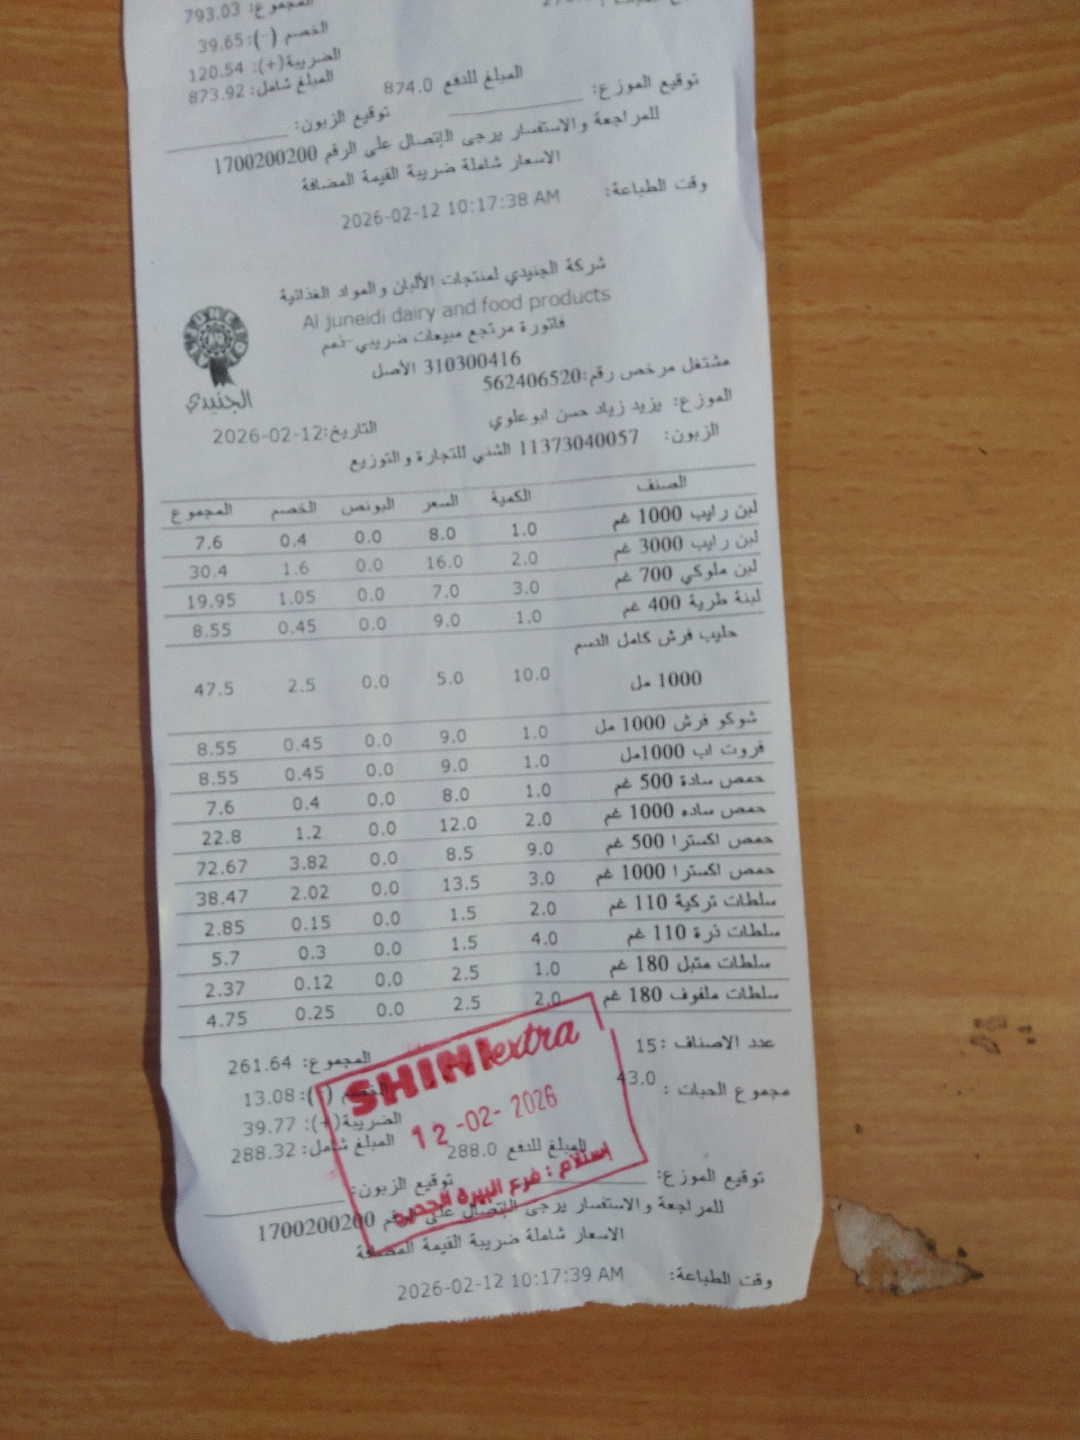 المجموع: 793.03
الخصم (-): 39.65
الضريبة(+): 120.54
المبلغ شامل: 873.92
المبلغ للدفع 874.0
توقيع الموزع:
توقيع الزبون:
للمراجعة والاستفسار يرجى الإتصال على الرقم 1700200200
الاسعار شاملة ضريبة القيمة المضافة
وقت الطباعة: 2026-02-12 10:17:38 AM
شركة الجنيدي لمنتجات الألبان والمواد الغذائية
Al juneidi dairy and food products
فاتورة مرتجع مبيعات ضريبي-ذمم
310300416 الأصل
الجنيدي
مشتغل مرخص رقم:562406520
الموزع: يزيد زياد حسن ابوعلوي
التاريخ:2026-02-12
الزبون: 11373040057 الشني للتجارة والتوزيع
الصنف الكمية السعر البونص الخصم المجموع
لبن رايب 1000 غم 1.0 8.0 0.0 0.4 7.6
لبن رايب 3000 غم 2.0 16.0 0.0 1.6 30.4
لبن ملوكي 700 غم 3.0 7.0 0.0 1.05 19.95
لبنة طرية 400 غم 1.0 9.0 0.0 0.45 8.55
حليب فرش كامل الدسم
1000 مل 10.0 5.0 0.0 2.5 47.5
شوكو فرش 1000 مل 1.0 9.0 0.0 0.45 8.55
فروت اب 1000مل 1.0 9.0 0.0 0.45 8.55
حمص سادة 500 غم 1.0 8.0 0.0 0.4 7.6
حمص ساده 1000 غم 2.0 12.0 0.0 1.2 22.8
حمص اكسترا 500 غم 9.0 8.5 0.0 3.82 72.67
حمص اكسترا 1000 غم 3.0 13.5 0.0 2.02 38.47
سلطات تركية 110 غم 2.0 1.5 0.0 0.15 2.85
سلطات ذرة 110 غم 4.0 1.5 0.0 0.3 5.7
سلطات متبل 180 غم 1.0 2.5 0.0 0.12 2.37
سلطات ملفوف 180 غم 2.0 2.5 0.0 0.25 4.75
عدد الاصناف : 15
المجموع: 261.64
مجموع الحبات : 43.0
الخصم (-): 13.08
الضريبة(+): 39.77
المبلغ شامل: 288.32
المبلغ للدفع 288.0
SHINI extra
12-02-2026
استلام : فرع البيره الجديد
توقيع الموزع:
توقيع الزبون:
للمراجعة والاستفسار يرجى الإتصال على الرقم 1700200200
الاسعار شاملة ضريبة القيمة المضافة
وقت الطباعة: 2026-02-12 10:17:39 AM